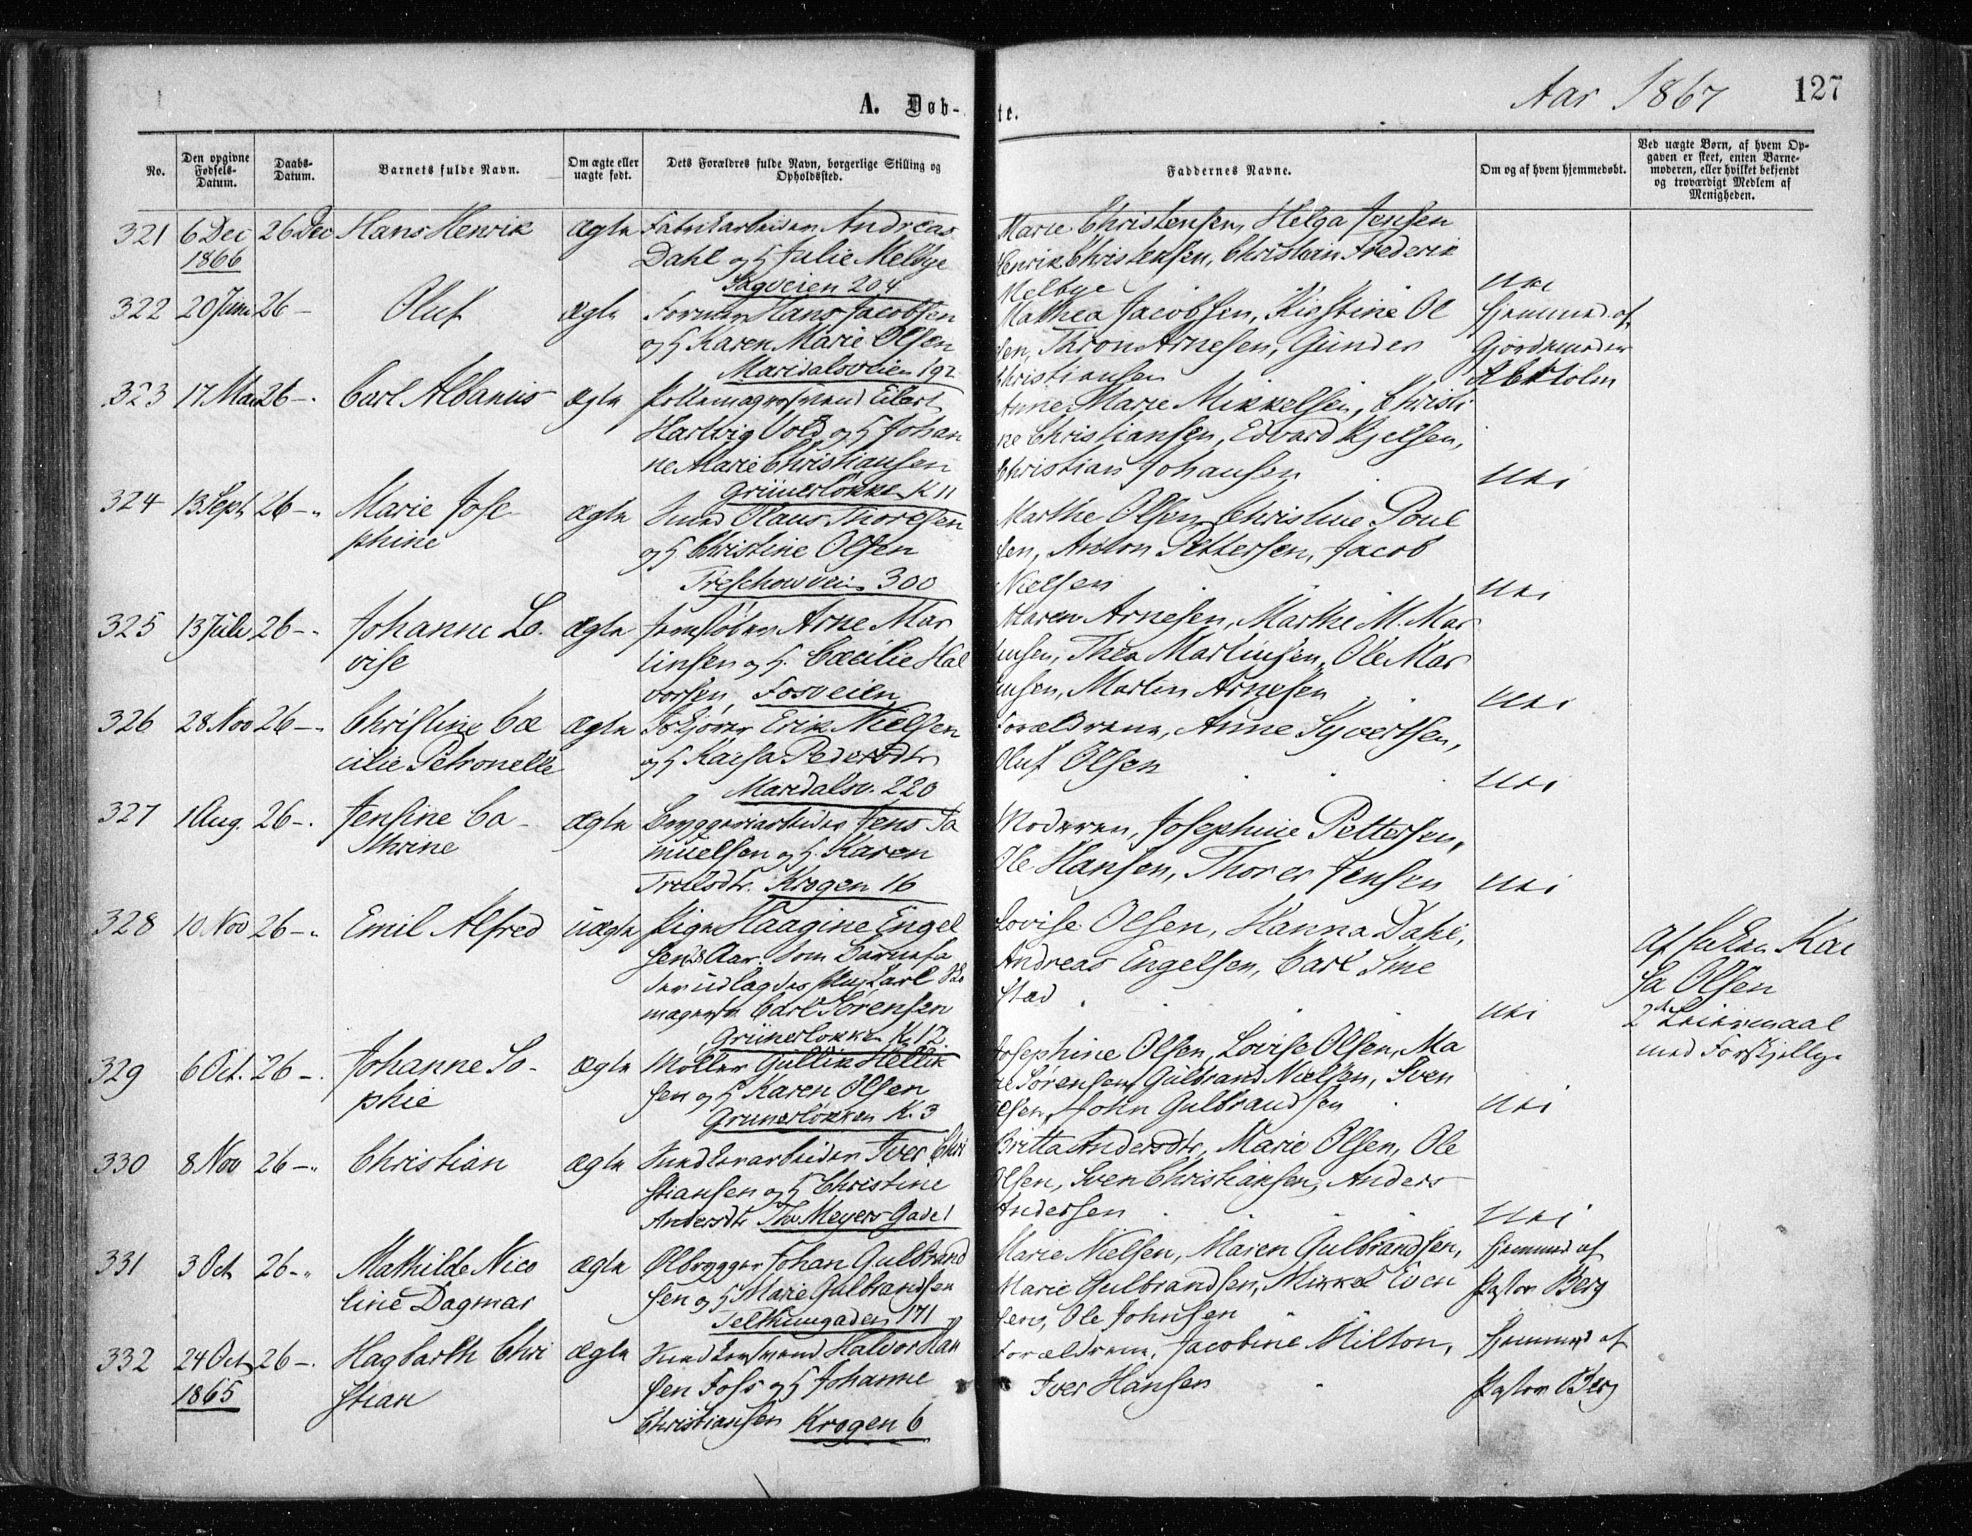 A. Døb-
te.
Aar 1867
127
No.
Den opgivne Fødsels-Datum.
Daabs-Datum.
Barnets fulde Navn.
Om ægte eller uægte født.
Dets Forældres fulde Navn, borgerlige Stilling og Opholdssted.
Faddernes Navne.
Om og af hvem hjemmedøbt.
Ved uægte Børn, af hvem Opgaven er skeet, enten Barnemoderen, eller hvilket bekjendt og troværdigt Medlem af Menigheden.
321 6 Dec 26 Dec Hans Henrik ægte Fabrikarbeider Andreas
1866 Dahl og H Julie Melbye
Sagveien 204
Marie Christensen, Helga Jensen
Henrik Christensen, Christian Frederik
Melbye Nei
322 20 Juni 26 - Oluf ægte Former Hans Jacobsen
og H Karen Marie Olsen
Maridalsveien 192
Mathea Jacobsen, Kistine Ol
sen, Thron Arnesen, Gunder
Christiansen
Hjemmed. af
Gjordemoder
Holm
323 17 Mai 26 -. Carl Albanus ægte Pottemagersvend Eilert
Hartvig Vold og H Johan
ne Marie Christiansen
Grünerløkken K 11
Anne Marie Mikkelsen, Christi
ne Christiansen, Edvard Kjelsen,
Christian Johansen Nei
324 13 Sept. 26 -. Marie Jose- ægte Smed Claus Thoresen
phine og H Christine Olsen
Treschowveien 300
Marthe Olsen, Christine Poul
sen, Anton Pettersen, Jacob
Nielsen Nei
325 13 Juli 26 -. Johanne Lo- ægte Jernstøber Arne Mar
vise tinsen og H. Cæcilie Hal
vorsen, Fosveien
Maren Arnesen, Marthe M. Mar
tinsen, Thea Martinsen, Ole Mar
tinsen, Martin Arnesen Nei
326 28 Nov 26 -. Christine Cæ ægte Erik Nielsen
cilie Petronelle og H Kaisa Pedersdtr
Maridalsv. 220
Forældrene, Anne Syvertsen,
Oluf Olsen Nei
327 1 Aug. 26 -. Jensine Ca- ægte Bryggeriarbeider Jens Sa
thrine muelsen og H. Karen
Trulsdtr. Krogen 16
Moderen, Josephine Pettersen,
Ole Hansen, Thorer Jensen Nei
328 10 Nov 26 -. Emil Alfred uægte Pige Haagine Engel
sen Aar. Som Barnefa
der udlagdes Ung Karl
Carl Sørensen
Grünerløkken K. 12.
Lovise Olsen, Hanna Dahl,
Andreas Engelsen, Carl Sme
stad Nei
Af Kai
sa Olsen
2det Leiermaal
med Forskjellige
329 6 Oct. 26 -. Johanne So- ægte Møller Gullik Hellik
phie sen og H Karen Olsen
Grünerløkken K. 3
Josephine Olsen, Lovise Olsen, Ma
rie Sørensen, Gulbrand Nielsen, Sven
Olsen, John Gulbrandsen Nei
330 8 Nov 26 -. Christian ægte Iver Chri
stiansen og H Christine
Andersdtr Thv Meyers Gade 1
Britta Andersdtr, Marie Olsen, Ole
Olsen, Sven Christiansen, Anders
Andersen Nei
331 3 Oct 26 -. Mathilde Nico ægte Ølbrygger Johan Gulbrand
line Dagmar sen og H Marie Gulbrandsen
Telthusgaden 171
Marie Nielsen, Maren Gulbrandsen,
Marie Gulbrandsen, Mikkel Even
sen, Ole Johnsen
Hjemmed af
Pastor Berg
332 24 Oct 26 -. Hagbarth Chri ægte Snedkersvend Halvor Han
1865 stian sen Foss og H Johanne
Christiansen Krogen 6
Forældrene, Jacobine Milton,
Iver Hansen
Hjemmed af
Pastor Berg